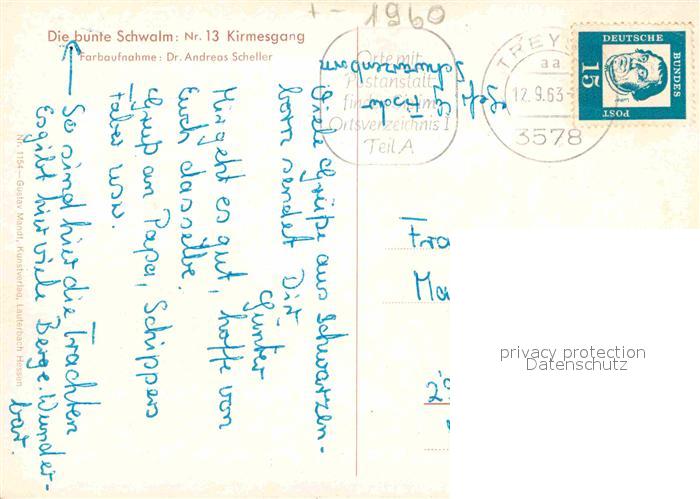 + - 1960
Die bunte Schwalm: Nr. 13 Kirmesgang
Farbaufnahme: Dr. Andreas Scheller
Orte mit
Postanstalt
Ortsverzeichnis I
Teil A
TREYS
aa
12.9.63-
3578
DEUTSCHE
BUNDES
POST
15
Schwarzenborn
Viele Grüße aus Schwarzen-
born sendet Dir
Günter
Mir geht es gut, hoffe von
Euch dasselbe.
Gruß an Papa, Schippers
Tabea usw.
So sind hier die Trachten
Es gibt hier viele Berge. Wunder-
bar.
Nr. 1154 — Gustav Mandt, Kunstverlag, Lauterbach Hessen
Fra
Ma
29
privacy protection
Datenschutz